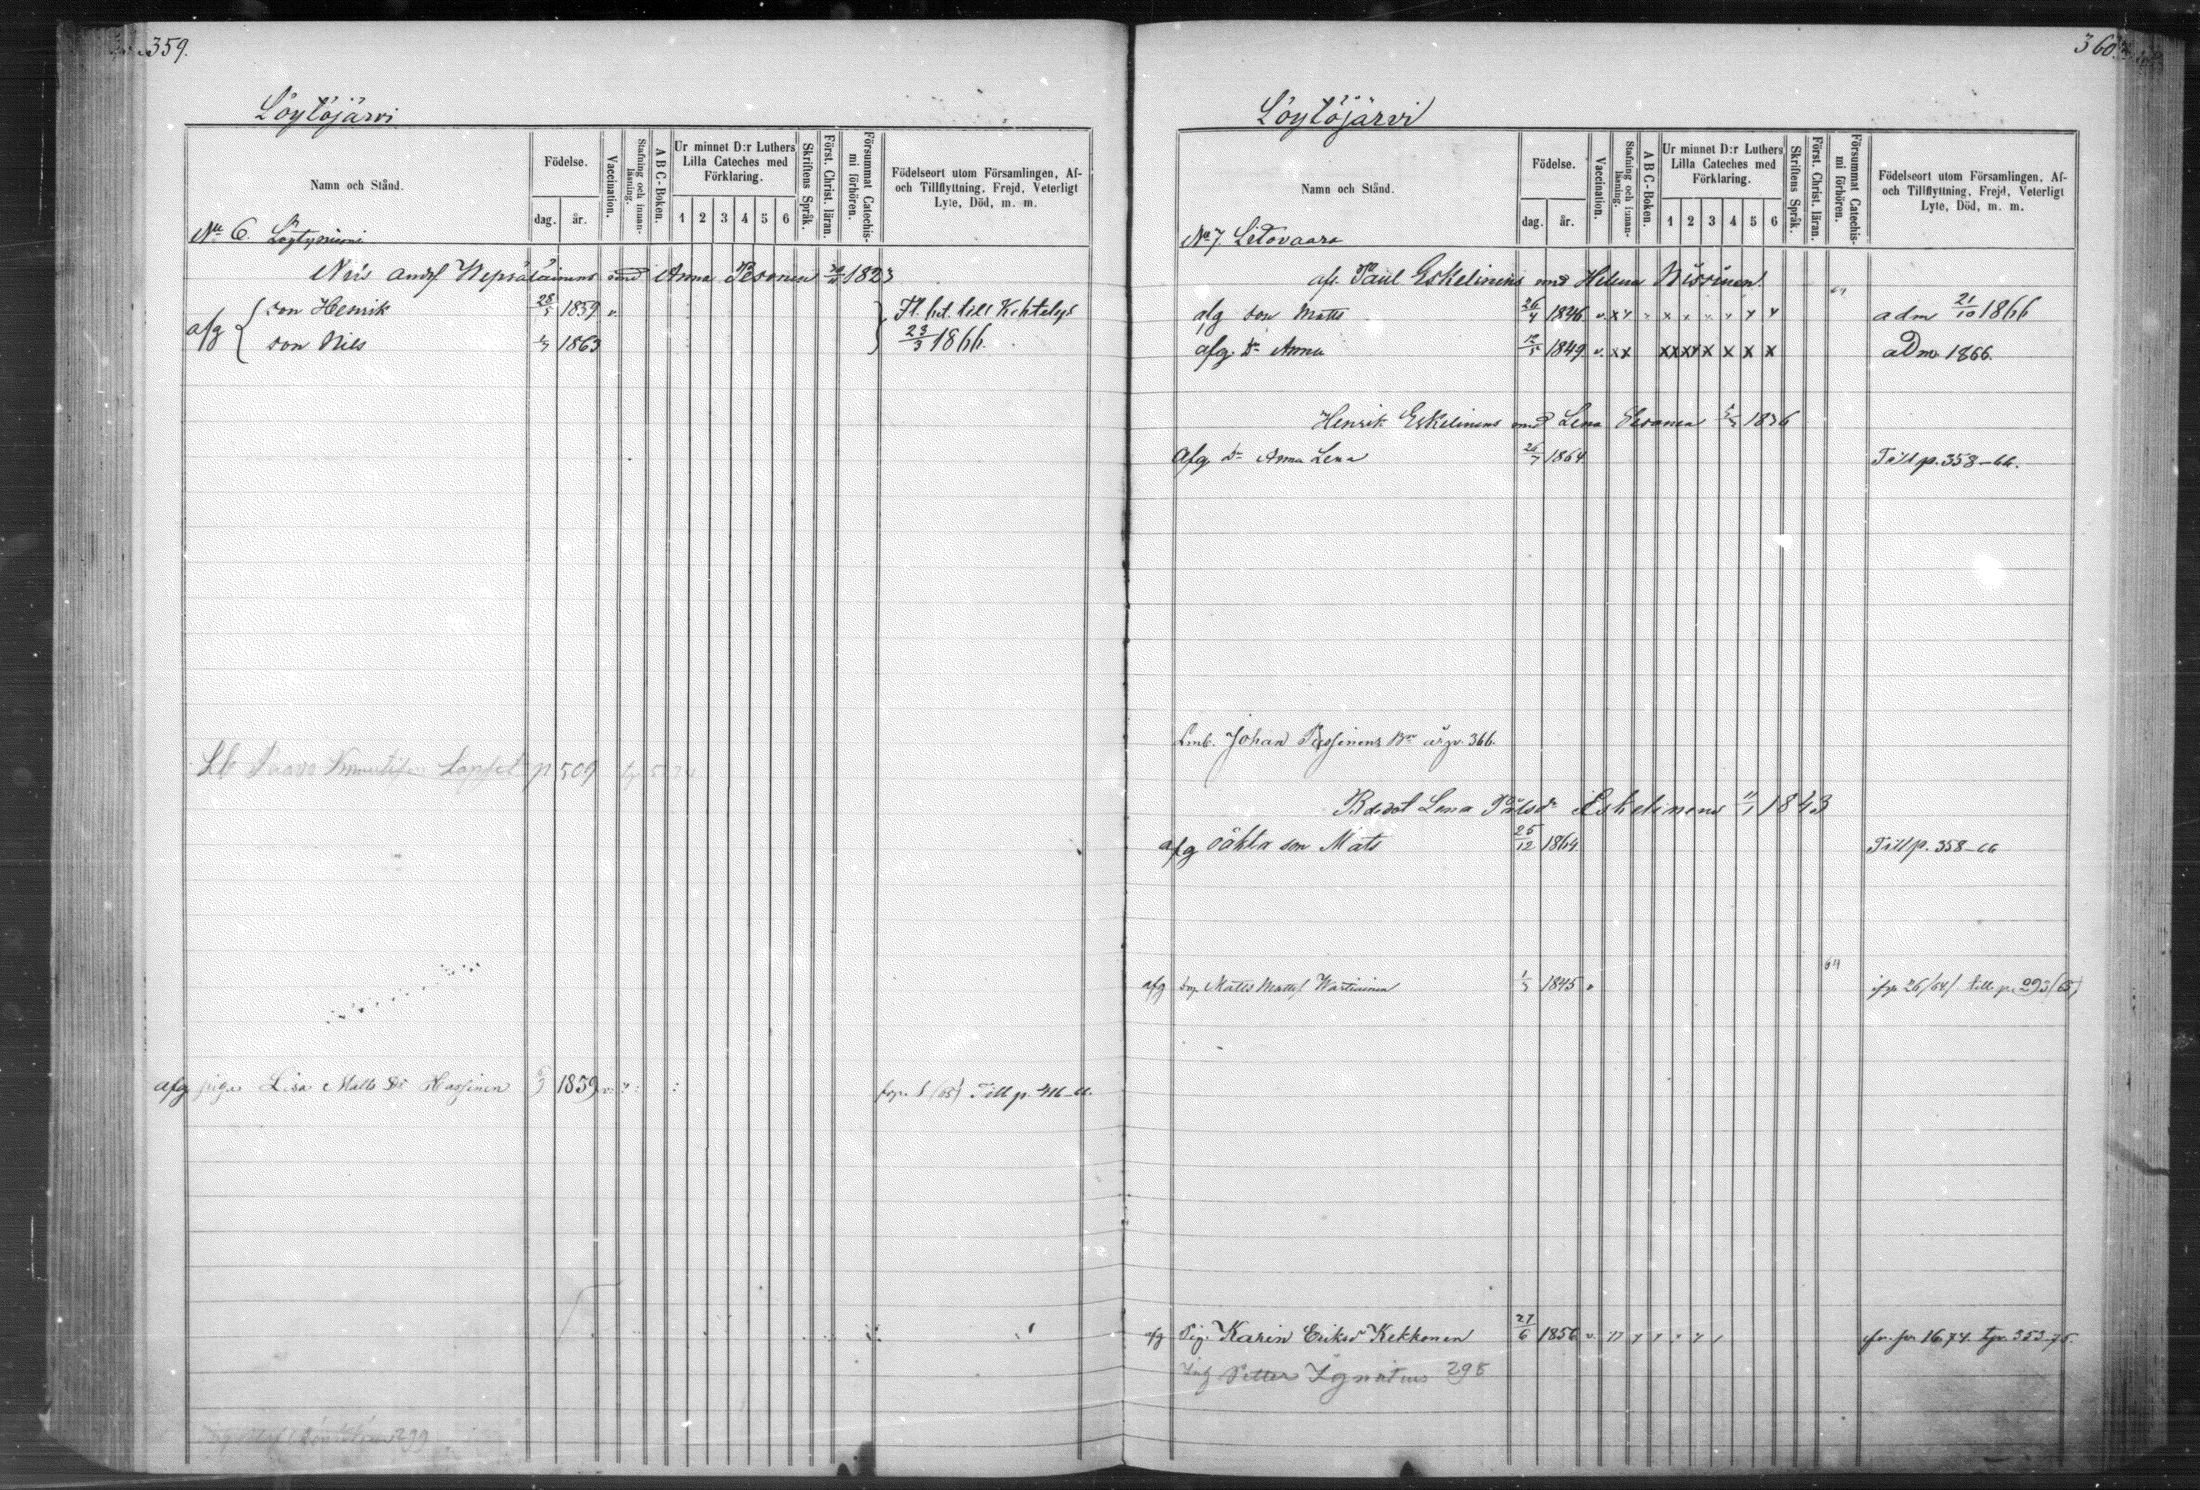 359.
Löytöjärvi
Namn och Stånd.
Födelse.
dag. år.
Vaccination.
Stafning och innanläsning.
A B C-Boken.
Ur minnet D:r Luthers Lilla Cateches med Förklaring.
1 2 3 4 5 6
Skriftens Språk.
Först. Christ. läran.
Försummat Catechismi förhören.
Födelseort utom Församlingen, Af- och Tillflyttning, Frejd, Veterligt Lyte, Död, m. m.
No 6. Löytyniemi
Nils Andsf Wepsäläinens med Anna Pesonen 1823
afg son Henrik 28/5 1859 v
son Nils 1863
Fl. bet. till Kihtelys 23/3 1866.
p 509
afg piga Lisa Matts Dr Hassinen 1859 Till p. 416-66.
360.
Löytöjärvi
Namn och Stånd.
Födelse.
dag. år.
Vaccination.
Stafning och innanläsning.
A B C-Boken.
Ur minnet D:r Luthers Lilla Cateches med Förklaring.
1 2 3 4 5 6
Skriftens Språk.
Först. Christ. läran.
Försummat Catechismi förhören.
Födelseort utom Församlingen, Af- och Tillflyttning, Frejd, Veterligt Lyte, Död, m. m.
No 7. Litovaara
afl. Paul Eskelinens med Helena Nissinen
afg son Matts 26/4 1846 adm 21/10 1866
afg. Dr Anna 1849 v. adm 1866.
Henrik Eskelinens med Lena Pesonen 1836
Afg Dr Anna Lena 26/7 1864 Till p. 358-66.
Johan Passinens Br är p. 366.
Lena Pålsdr Eskelinens 11/1 1843
afg oäkta son Mats 25/12 1864 Till p. 358-66
64
afg Matts Mattsf Wartiainen 1845 v 26/64/ till p. 293/65)
afg Pig. Karin Eriksd Kekkonen 27/6 1856 v. fr. p. 16.74. tp. 353-75.
Petter Ignatius 295